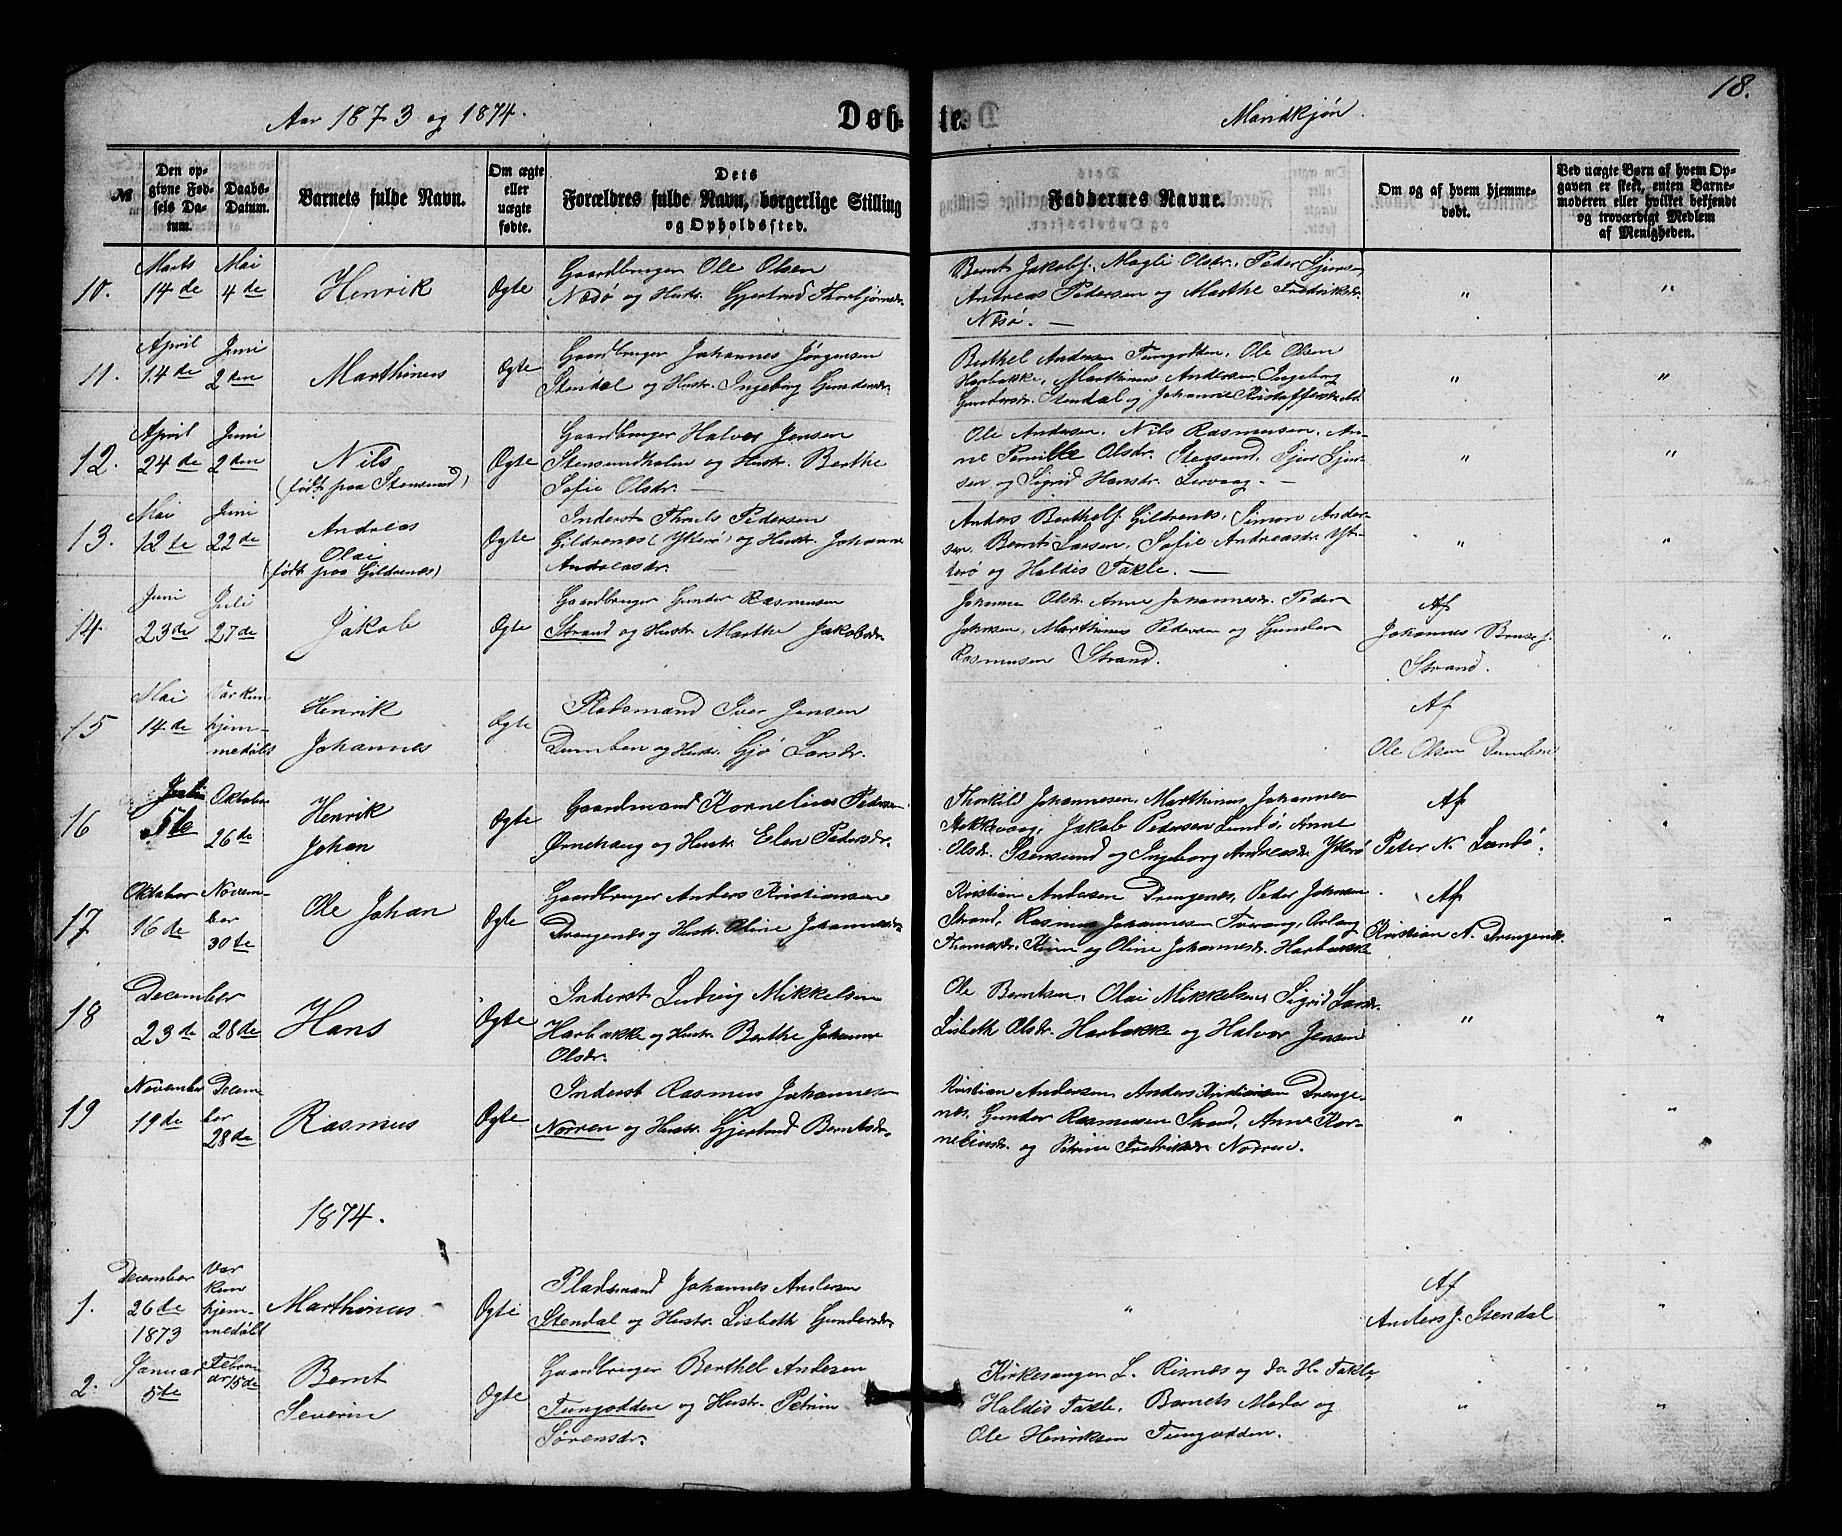 18.
Aar 1873 og 1874.
Døb-
te.
Mandkjøn.
№
Den op-
givne Fød-
sels Da-
tum.
Daabs-
Datum.
Barnets fulde Navn.
Om ægte
eller
uægte
fødte.
Dets
Forældres fulde Navn, borgerlige Stilling
og Opholdssted.
Faddernes Navne.
Om og af hvem hjemme-
døbt.
Ved uægte Børn af hvem Op-
gaven er skeet, enten Barne-
moderen eller hvilket bekjendt
og troværdigt Medlem
af Menigheden.
10.
Marts
14de
Mai
4de
Henrik
Ægte
Gaardbruger Ole Olsen
Nædø og Hustr. Gjertrud Thorbjørnsdr.
Bernt Jakobs., Magli Olsdr., Peder
Andreas Pedersen og Marthe Fredriksdr.
Nesø. —
"
"
11.
April
14de
Juni
2den
Marthinus
Ægte
Gaardbruger Johannes Jørgensen
Stendal og Hustr. Ingeborg Gundersdr.
Berthel Andersen Tungodden, Ole Olsen
Harbakke, Marthinus Andersen, Ingeborg
Gundersdr. Stendal og Johanne
"
"
12.
April
24de
Juni
2den
Nils
(født paa Stensund)
Ægte
Gaardbruger Halvor Jensen
Stensundholm og Hustr. Berthe
Sofie Olsdr. —
Ole Andersen, Nils Rasmussen, An-
ne Pernille Olsdr. Stensund,
sen og Sigrid Hansdr. Lervaag. —
"
"
13.
Mai
12te
Juni
22de
Andreas
Olai
(født paa Gildrenæs)
Ægte
Inderst Pedersen
Gildrenæs (Ytterø) og Hustr. Johanne
Andreasdr.
Anders Berthels. Gildrenæs, Simon Ander-
sen, Bernt Larsen, Sofie Andreasdr. Yt-
terø og Haldis Takle. —
"
"
14
Juni
23de
Juli
27de
Jakob
Ægte
Gaardbruger Gunder Rasmussen
Strand og Hustr. Marthe Jakobsdr.
Johanne Olsdr. Anne Johannesdr. Peder
Johnsen, Marthinus Pedersen og Gunder
Rasmussen Strand.
Af
Johannes
Strand.
"
15
Mai
14de
Var kun
hjem-
medøbt
Henrik
Johannes
Ægte
Pladsmand Iver Jensen
Dumben og Hustr. Gjø Larsdr.
"
Af
Ole Olsen Dumben
"
16
5te
Oktober
26de
Henrik
Johan
Ægte
Gaardmand Kornelius Pedersen
Ørnehaug og Hustr. Elen Pedersdr.
Thorkild Johannesen, Marthinus Johannesen
Nekkevaag, Jakob Pedersen Lundø, Anne
Olsdr. Stensund og Ingeborg Andreasdr. Ytterø
Af
Peter N. Lundø.
"
17
Oktober
16de
Novem-
ber
30te
Ole Johan
Ægte
Gaardbruger Anders Kristiansen
Drengenes og Hustr. Oline Johannesdr.
Kristian Andersen Drengenes, Peder Johnsen
Strand, Rasmus Johannesen
Thomasdr. og Oline Johannesdr. Harbakke
Af
Kristian A. Drengenes.
"
18
December
23de
28de
Hans
Ægte
Inderst Ludvig Mikkelsen
Harbakke og Hustr. Berthe Johanne
Olsdr.
Ole Berntsen, Olai Mikkelsen, Sigrid Larsdr.
Lisbeth Olsdr. Harbakke og Halvor Jensen
"
"
19
November
19de
Decem
ber
28de
Rasmus
Ægte
Inderst Rasmus Johannesen
Norren og Hustr. Gjertrud Berntsdr.
Kristian Andersen, Anders Kristiansen Drenge-
nes, Gunder Rasmussen Strand, Anne Kor-
neliusdr. og Petrine Fredriksdr. Norren.
"
"
1874.
1.
December
26de
1873
Var
kun
hjem-
medøbt
Marthinus
Ægte
Pladsmand Johannes Andersen
Stendal og Hustr. Lisbeth Gundersdr.
"
Af
Anders J. Stendal
"
2.
Januar
5te
Februar
15de
Bernt
Severin
Ægte
Gaardbruger Berthel Andersen
Tungodden og Hustr. Petrine
Sørensdr.
Kirkesanger L. Risnes og H. Takle,
Haldis Takle, Barnets Moder og
Ole Henriksen Tungodden.
"
"